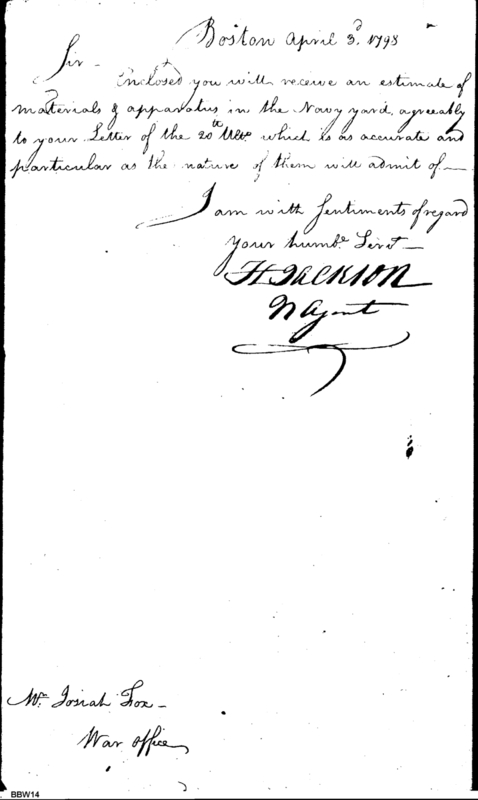 Boston April 3d. 1798
Sir -
Enclosed you will receive an estimate of
materials & apparatus in the Navy yard, agreeably
to your Letter of the 20th Ulto. which is as accurate and
particular as the nature of them will admit of. —
I am with Sentiments of regard
your humbe. Servt —
H JACKSON
N Agent
Mr. Josiah Fox -
War office
BBW14